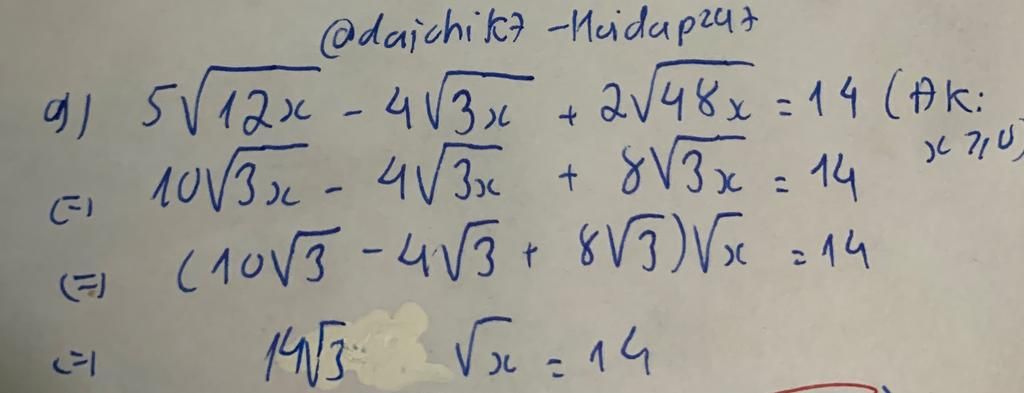 @daichik7 - Hoidap247
a) 5√12x - 4√3x + 2√48x = 14 (ĐK: x ⩾ 0)
<=> 10√3x - 4√3x + 8√3x = 14
<=> (10√3 - 4√3 + 8√3)√x = 14
<=> 14√3 √x = 14